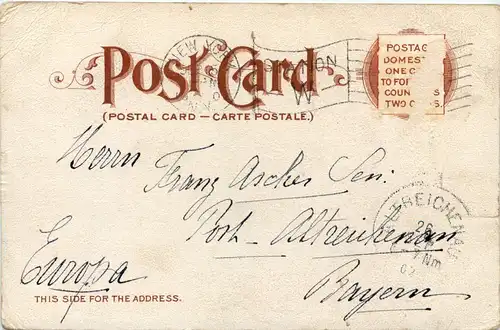 NEW YORK
STATION
W
Post Card
(POSTAL CARD — CARTE POSTALE.)
POSTAG
DOMES
ONE C
TO FOR
COUN S
TWO C S.
Herrn
Franz Ascher Sen.
Post - Altreichenau
Bayern
Europa
REICHENAU
26
7 Nm
02
THIS SIDE FOR THE ADDRESS.